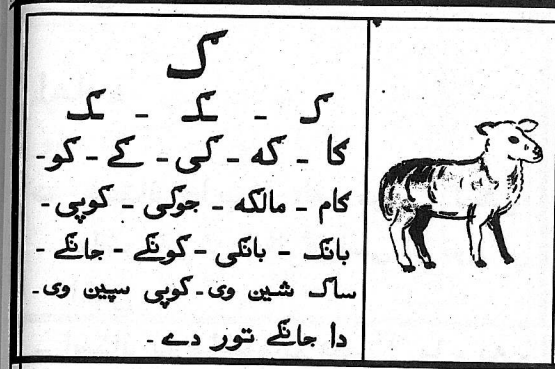 ک
کـ - ـکـ - ـک
کا - که - کی - کے - کو -
کام - مالکه - جوکی - کوپی -
بانک - بانکی - کونکے - جانکے -
ساک شین وی - کوپی سپین وی -
دا جانکے تور دے -